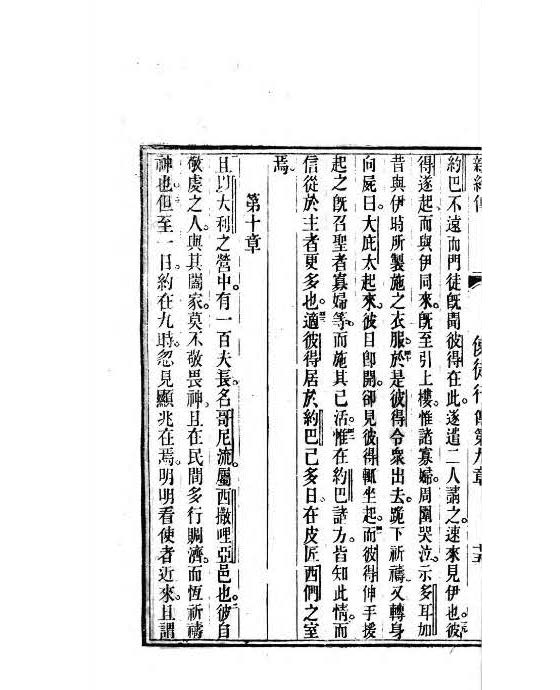 使徒行傳第九章
約巴不遠而門徒旣聞彼得在此。遂遣二人請之。速來見伊也。彼
得遂起而與伊同來。旣至引上樓。惟諸寡婦。周圍哭泣。示多耳加
昔與伊時所製施之衣服。於是彼得令衆出去。跪下祈禱。又轉身
向屍。曰。大庇太起來。彼目卽開。卻見彼得。輒坐起。而彼得伸手援
起之。旣召聖者寡婦等。而施其已活。惟在約巴諸方。皆知此情。而
信從於主者更多也。適彼得居於約巴已多日。在皮匠西們之室
焉。
第十章
且以大利之營中。有一百夫長。名哥尼流。屬西撒哩亞邑也。彼自
敬虔之人。與其闔家。莫不敬畏神。且在民間多行賙濟。而恆祈禱
神也。但至一日。約在九時。忽見顯兆在焉。明明看使者近來。且謂